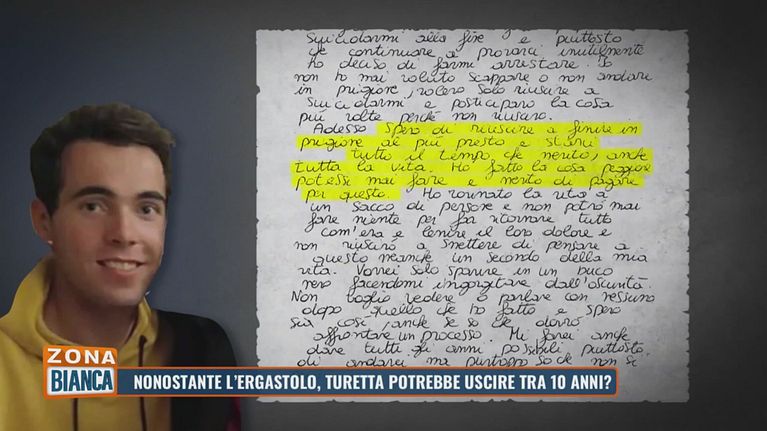 suicidarmi alla fine e piuttosto
che continuare a provarci inutilmente
ho deciso di farmi arrestare. Io
non ho mai voluto scappare o non andare
in prigione, volevo solo riuscire a
suicidarmi e posticipavo la cosa
più volte perché non riuscivo.
Adesso spero di riuscire a finire in
prigione al più presto e starci
tutto il tempo che merito, anche
tutta la vita. Ho fatto la cosa peggiore
potessi mai fare e merito di pagare
per questo. Ho rovinato la vita a
un sacco di persone e non potrò mai
fare niente per far ritornare tutto
com'era e lenire il loro dolore e
non riuscirò a smettere di pensare a
questo neanche un secondo della mia
vita. Vorrei solo sparire in un buco
nero facendomi ingoiare dall'oscurità.
Non voglio vedere o parlare con nessuno
dopo quello che ho fatto e spero
sia così, anche se so che dovrò
affrontare un processo. Mi farei anche
dare tutti gli anni possibili piuttosto
di andarci ma purtroppo so che non si
ZONA
BIANCA
NONOSTANTE L'ERGASTOLO, TURETTA POTREBBE USCIRE TRA 10 ANNI?